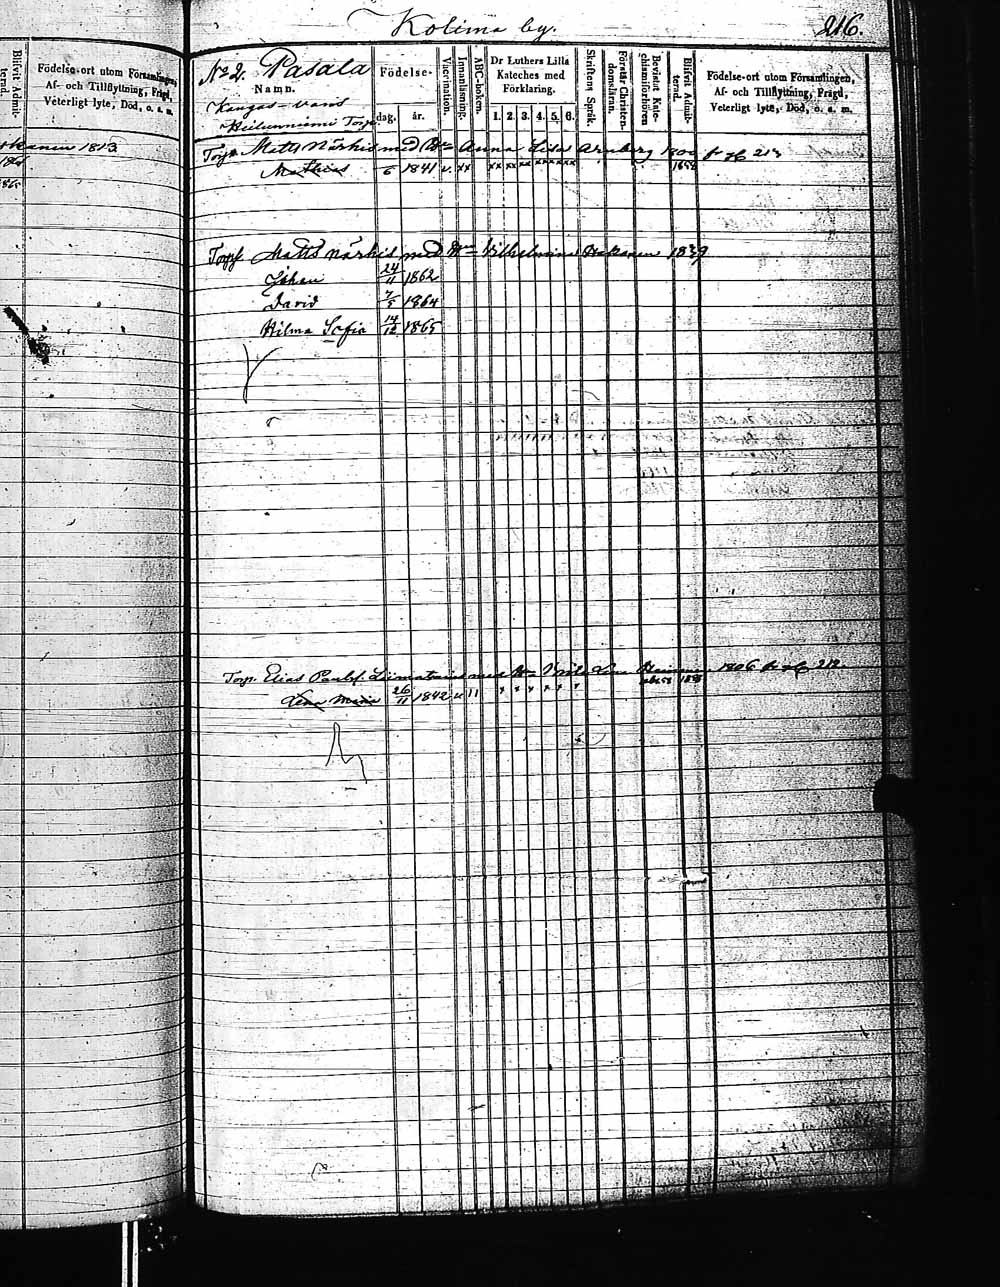 Kolima by.
216.
Blifvit Admitterad.
Födelse-ort utom Församlingen,
Af- och Tillflyttning, Frägd,
Veterligt lyte, Död, o. a. m.
1813
No 2. Pasala
Namn.
Kangas-
Torp.
Födelse-
dag.
år.
Vaccination.
Innanläsning.
ABC-boken.
Dr Luthers Lilla
Kateches med
Förklaring.
1. 2. 3. 4. 5. 6.
Skriftens Språk.
Förstår Christendomsläran.
Bevistat Katechismiförhören
Blifvit Admitterad.
Födelse-ort utom Församlingen,
Af- och Tillflyttning, Frägd,
Veterligt lyte, Död, o. a. m.
Torp. Matts Närhis med Hu Anna Lisa Arnberg 1800
Mathias 6 1841 v. xx xx xx xx xx xx xx
Torp. Matts Närhis med Hu Vilhelmina Hakanen 1839
Johan 24/11 1862
David 7/5 1864
Hilma Sofia 14/12 1865
Torp. Elias Paulsf. Leimatainen med Hu 1806 212.
Lena Maria 26/11 1842 v. 11 x x x x x x